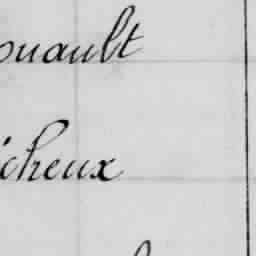 ouault
icheux